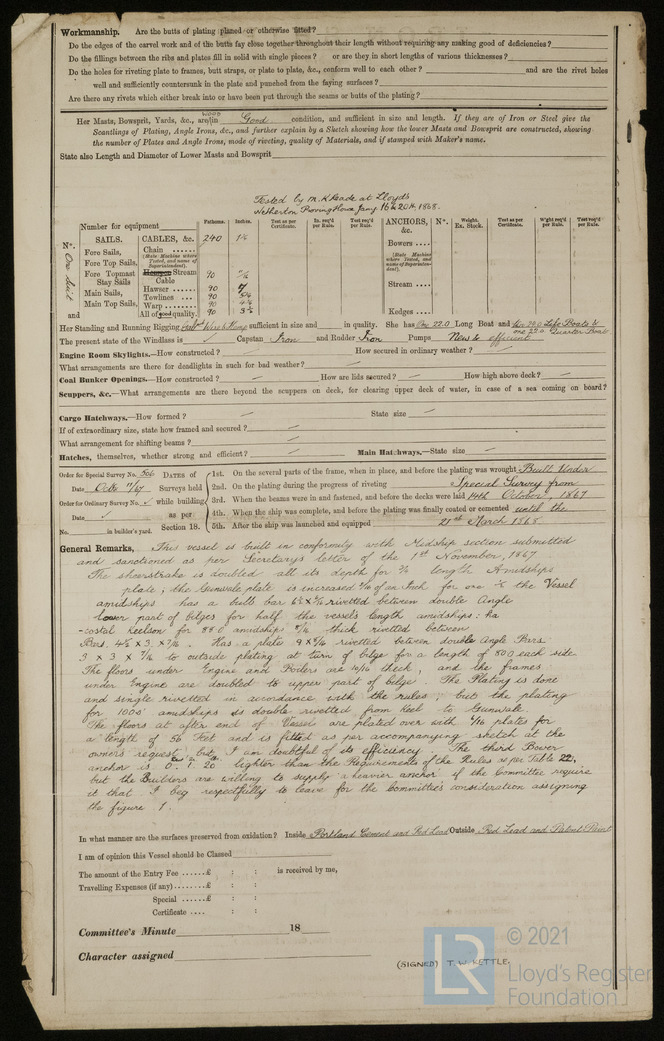 Workmanship. Are the butts of plating planed or otherwise fitted?
Do the edges of the carvel work and of the butts fay close together throughout their length without requiring any making good of deficiencies?
Do the fillings between the ribs and plates fill in solid with single pieces? or are they in short lengths of various thicknesses?
Do the holes for riveting plate to frames, butt straps, or plate to plate, &c., conform well to each other? and are the rivet holes
well and sufficiently countersunk in the plate and punched from the faying surfaces?
Are there any rivets which either break into or have been put through the seams or butts of the plating?
Her Masts, Bowsprit, Yards, &c., are in wood Good condition, and sufficient in size and length. If they are of Iron or Steel give the
Scantlings of Plating, Angle Irons, &c., and further explain by a Sketch showing how the lower Masts and Bowsprit are constructed, showing
the number of Plates and Angle Irons, mode of riveting, quality of Materials, and if stamped with Maker's name.
State also Length and Diameter of Lower Masts and Bowsprit
Tested by M. K. Reade at Lloyd's
Netherton Proving House Jany 16 & 20th, 1868.
Number for equipment Fathoms. Inches. Test as per Certificate. In. req'd per Rule. Test req'd per Rule. ANCHORS, &c. No. Weight. Ex. Stock. Test as per Certificate. W'ght req'd per Rule. Test req'd per Rule.
No. SAILS. CABLES, &c. 240
One suit
Fore Sails, Chain Bowers
(State Machine where Tested, and name of Superintendent).
Fore Top Sails,
Fore Topmast Stay Sails Hempen Stream Cable 90
Main Sails, Hawser 90 Stream
Main Top Sails, Towlines 90
Warp 90
and All of good quality. 90 Kedges
Her Standing and Running Rigging Wire & Hemp sufficient in size and in quality. She has One 22.0 Long Boat and two 22.0 Life Boats & one 22.0 Quarter Boat
The present state of the Windlass is Capstan Iron and Rudder Iron Pumps New & efficient
Engine Room Skylights.—How constructed? How secured in ordinary weather?
What arrangements are there for deadlights in such for bad weather?
Coal Bunker Openings.—How constructed? How are lids secured? How high above deck?
Scuppers, &c.—What arrangements are there beyond the scuppers on deck, for clearing upper deck of water, in case of a sea coming on board?
Cargo Hatchways.—How formed? State size
If of extraordinary size, state how framed and secured?
What arrangement for shifting beams?
Hatches, themselves, whether strong and efficient? Main Hatchways.—State size
Order for Special Survey No. 506 DATES of 1st. On the several parts of the frame, when in place, and before the plating was wrought Built Under
Date Octr 7/67 Surveys held 2nd. On the plating during the progress of riveting Special Survey from
Order for Ordinary Survey No. while building 3rd. When the beams were in and fastened, and before the decks were laid 14th October 1867
Date as per 4th. When the ship was complete, and before the plating was finally coated or cemented until the
No. in builder's yard. Section 18. 5th. After the ship was launched and equipped 21st March 1868
General Remarks, This vessel is built in conformity with Midship section submitted
and sanctioned as per Secretary's letter of the 1st November, 1867
The sheerstrake is doubled all its depth for length Amidships
plate; the Gunwale plate is increased of an Inch for one the Vessel
amidships has a bulb bar rivetted between double Angle
lower part of bilges for half the vessel's length amidships: ha
-costal keelson for 88 0 amidships thick rivetted between
Bars. Has a plate rivetted between double Angle Bars
3 x 3 x 7/16 to outside plating at turn of bilge for a length of 80 0 each side
The floors under Engine and Boilers are 10/16 thick, and the frames
under Engine are doubled to upper part of bilge. The Plating is done
and single rivetted in accordance with the rules; but the plating
for 100 0 amidships is double rivetted from Keel to Gunwale.
The floors at after end of Vessel are plated over with plates for
a length of 56 Feet and is fitted as per accompanying sketch at the
owners request, but I am doubtful of its efficiency. The third Bower
anchor is 0. 1. 20 lighter than the Requirements of the Rules as per Table 22,
but the Builders are willing to supply a heavier anchor if the Committee require
it that. I beg respectfully to leave for the Committee's consideration assigning
the figure 1.
In what manner are the surfaces preserved from oxidation? Inside Portland Cement and Red Lead Outside Red Lead and Patent Paint
I am of opinion this Vessel should be Classed
The amount of the Entry Fee £ : : is received by me,
Travelling Expenses (if any) £ : :
Special £ : :
Certificate : :
Committee's Minute 18
Character assigned
(SIGNED) T. W. KETTLE.
LR
© 2021
Lloyd's Register
Foundation